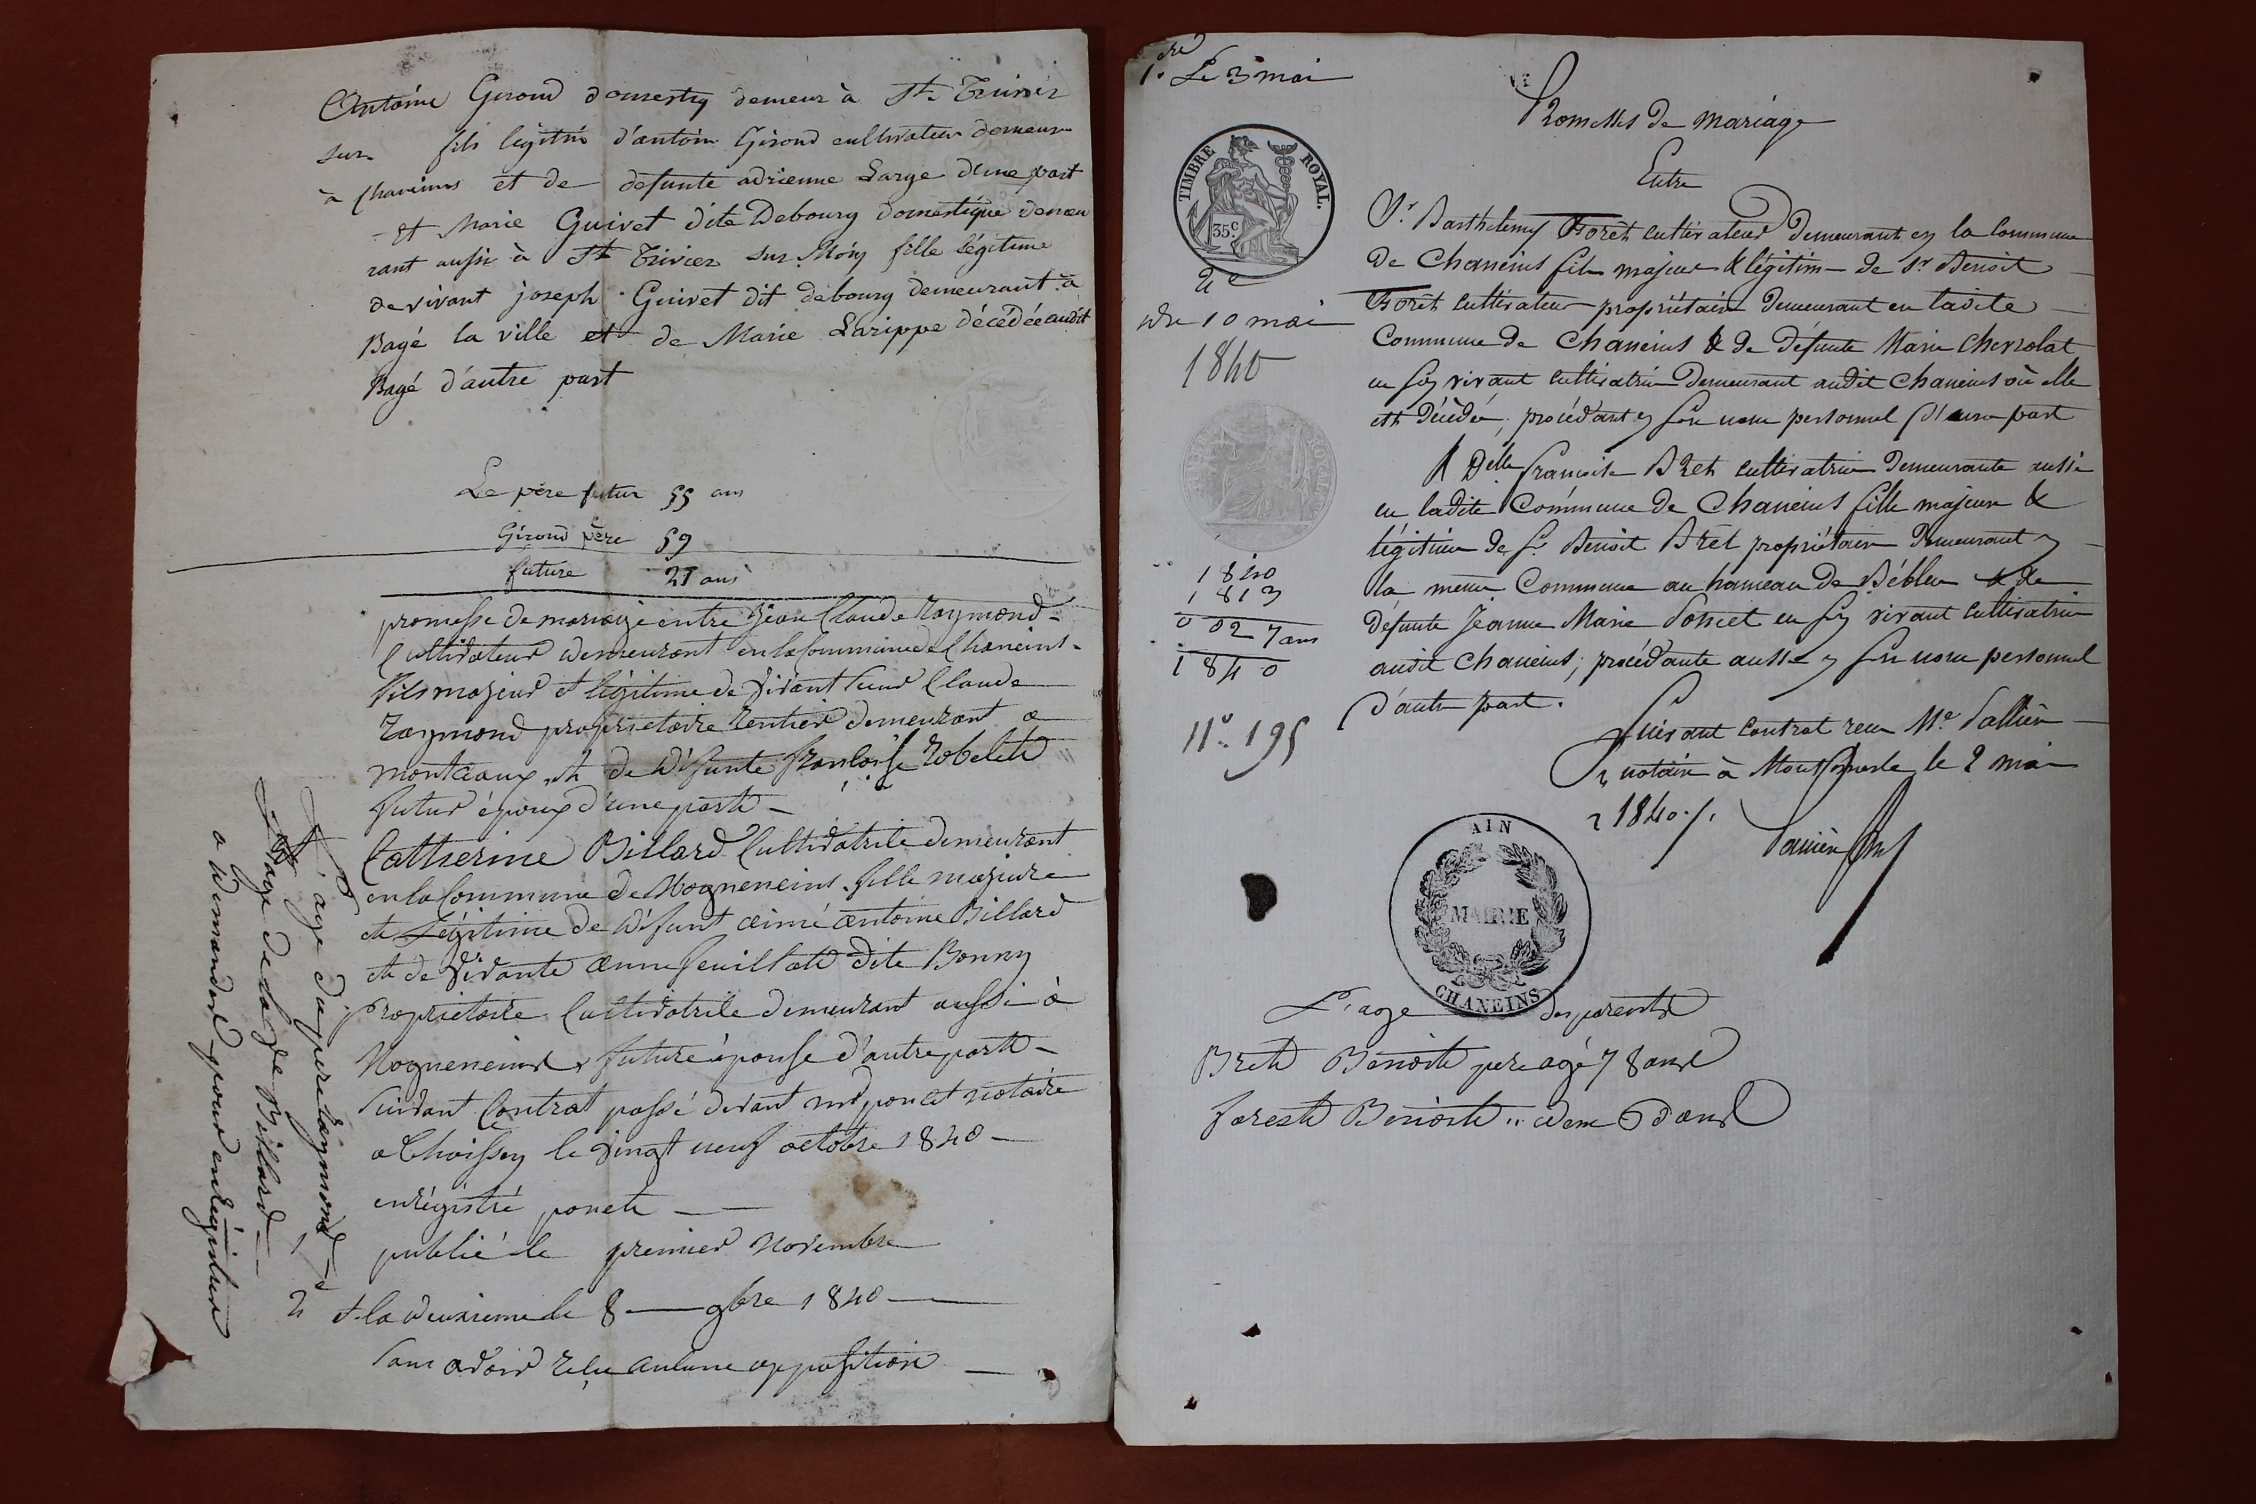 Antoine Giroud domestiq demeur à St. Trivier
sur fils légitim d'antoin Giroud cultivateur demeur
à Chaneins et de defunte adrienne Large d'une part
et Marie Guivet dite Debourg domestique demeu
rant aussi à St Trivier sur Moig fille légitime
de vivant joseph Guivet dit debourg demeurant à
Bagé la ville et de Marie Larippe décédée audit
Bagé d'autre part
Le père futur 55 ans
Giroud père 59
future 27 ans
promesse de mariage entre Jean Claude Raymond
Cultivateur demeurant en la Commune de Chaneins
fils majeur et légitime de vivant sieur Claude
Raymond propriétaire rentier demeurant a
montceaux et de défunte françoise Robelet
futur époux d'une part
Catherine Billard Cultivatrice demeurant
en la Commune de Mogneneins fille majeure
et Légitime de défunt aimé antoine Billard
et de vivante anne feuillet dite Bonny
Propriétaire Cultivatrice demeurant aussi à
Mogneneins future épouse d'autre part
suivant Contrat passé devant me poncet notaire
a Thoissey le vingt neuf octobre 1840
enrégistré poncet
publié le premier Novembre
et la deuxieme le 8 9bre 1840
sans avoir reçu aucune opposition
L'age du pere Raymond
L'age de la fe Billard
a demander pour enrégistrer
1re Le 3 mai
2e
du 10 mai
1840
1840
1813
0027 ans
1840
n° 195
TIMBRE ROYAL.
35c
Promesses de mariage
Entre
Sr Barthelemy Foret cultivateur demeurant en la commune
de Chaneins fils majeur & légitim de Sr Benoit
Foret cultivateur propriétaire demeurant en ladite
Commune de Chaneins & de défunte Marie Chervolat
en son vivant cultivatrice demeurant audit Chaneins où elle
est décédée, procédant en son nom personnel d'une part
& Delle françoise Bret cultivatrice demeurante aussi
en ladite Commune de Chaneins fille majeure &
légitime de Sr Benoit Bret propriétaire demeurant en
la meme Commune au hameau de Bébleu & de
défunte Jeanne Marie Poncet en son vivant cultivatrice
audit Chaneins; procédante aussi en son nom personnel
d'autre part.
Suivant contrat reçu Me Pallière
notaire à Montmerle le 2 mai
1840
AIN
MAIRIE
CHANEINS
L'age des parents
Bret Benoit pere agé 78 ans
forest Benoit " idem ans